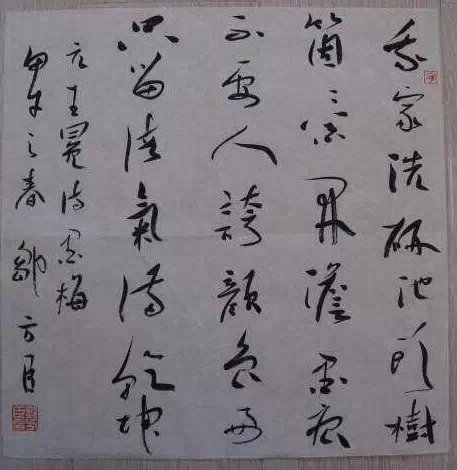 我家洗研池頭樹
箇々花開澹墨痕
不要人誇顏色好
只留清氣滿乾坤
元王冕詩墨梅
甲午之春 鄒方臣